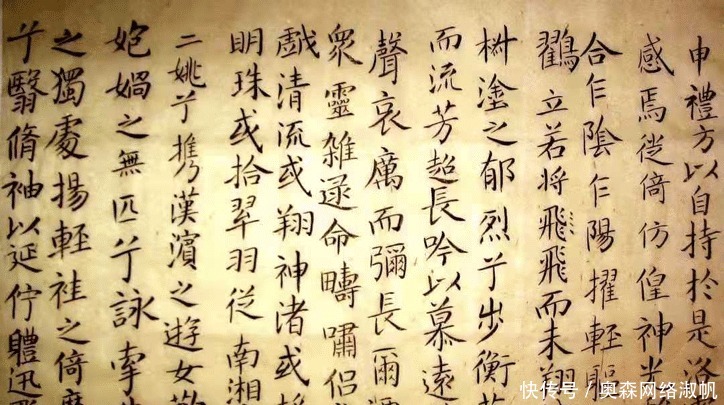 申禮方以自持於是洛
感焉徙倚仿偟神光
合乍陰乍陽擢輕軀
鸖立若將飛飛而未翔
椒塗之郁烈兮步衡薄
而流芳超長吟以慕遠
聲哀厲而彌長爾
衆靈雜遝命疇嘯侶
戲清流或翔神渚或採
明珠或拾翠羽從南湘
二姚兮攜漢濱之遊女歎
媧之無匹兮詠牽牛
之獨處揚輕袿之倚靡
兮翳脩袖以延佇軆迅
快传号/奥森网络淑帆